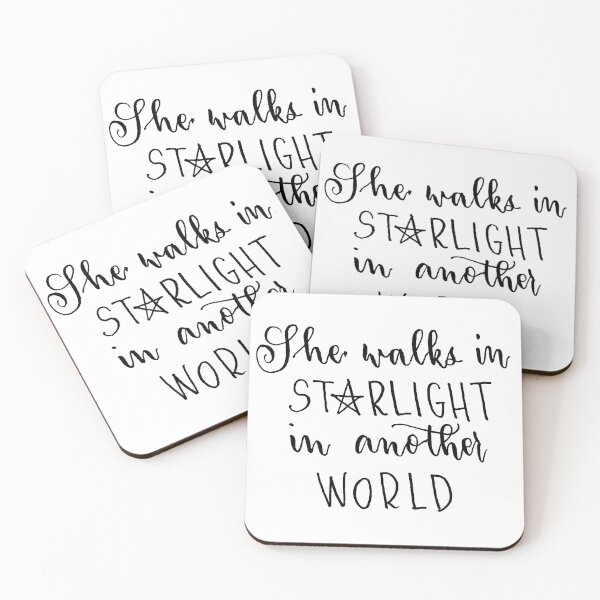 She walks in
STARLIGHT
She walks in
STARLIGHT
in another
She walks in
STARLIGHT
in another
WORL
She walks in
STARLIGHT
in another
WORLD